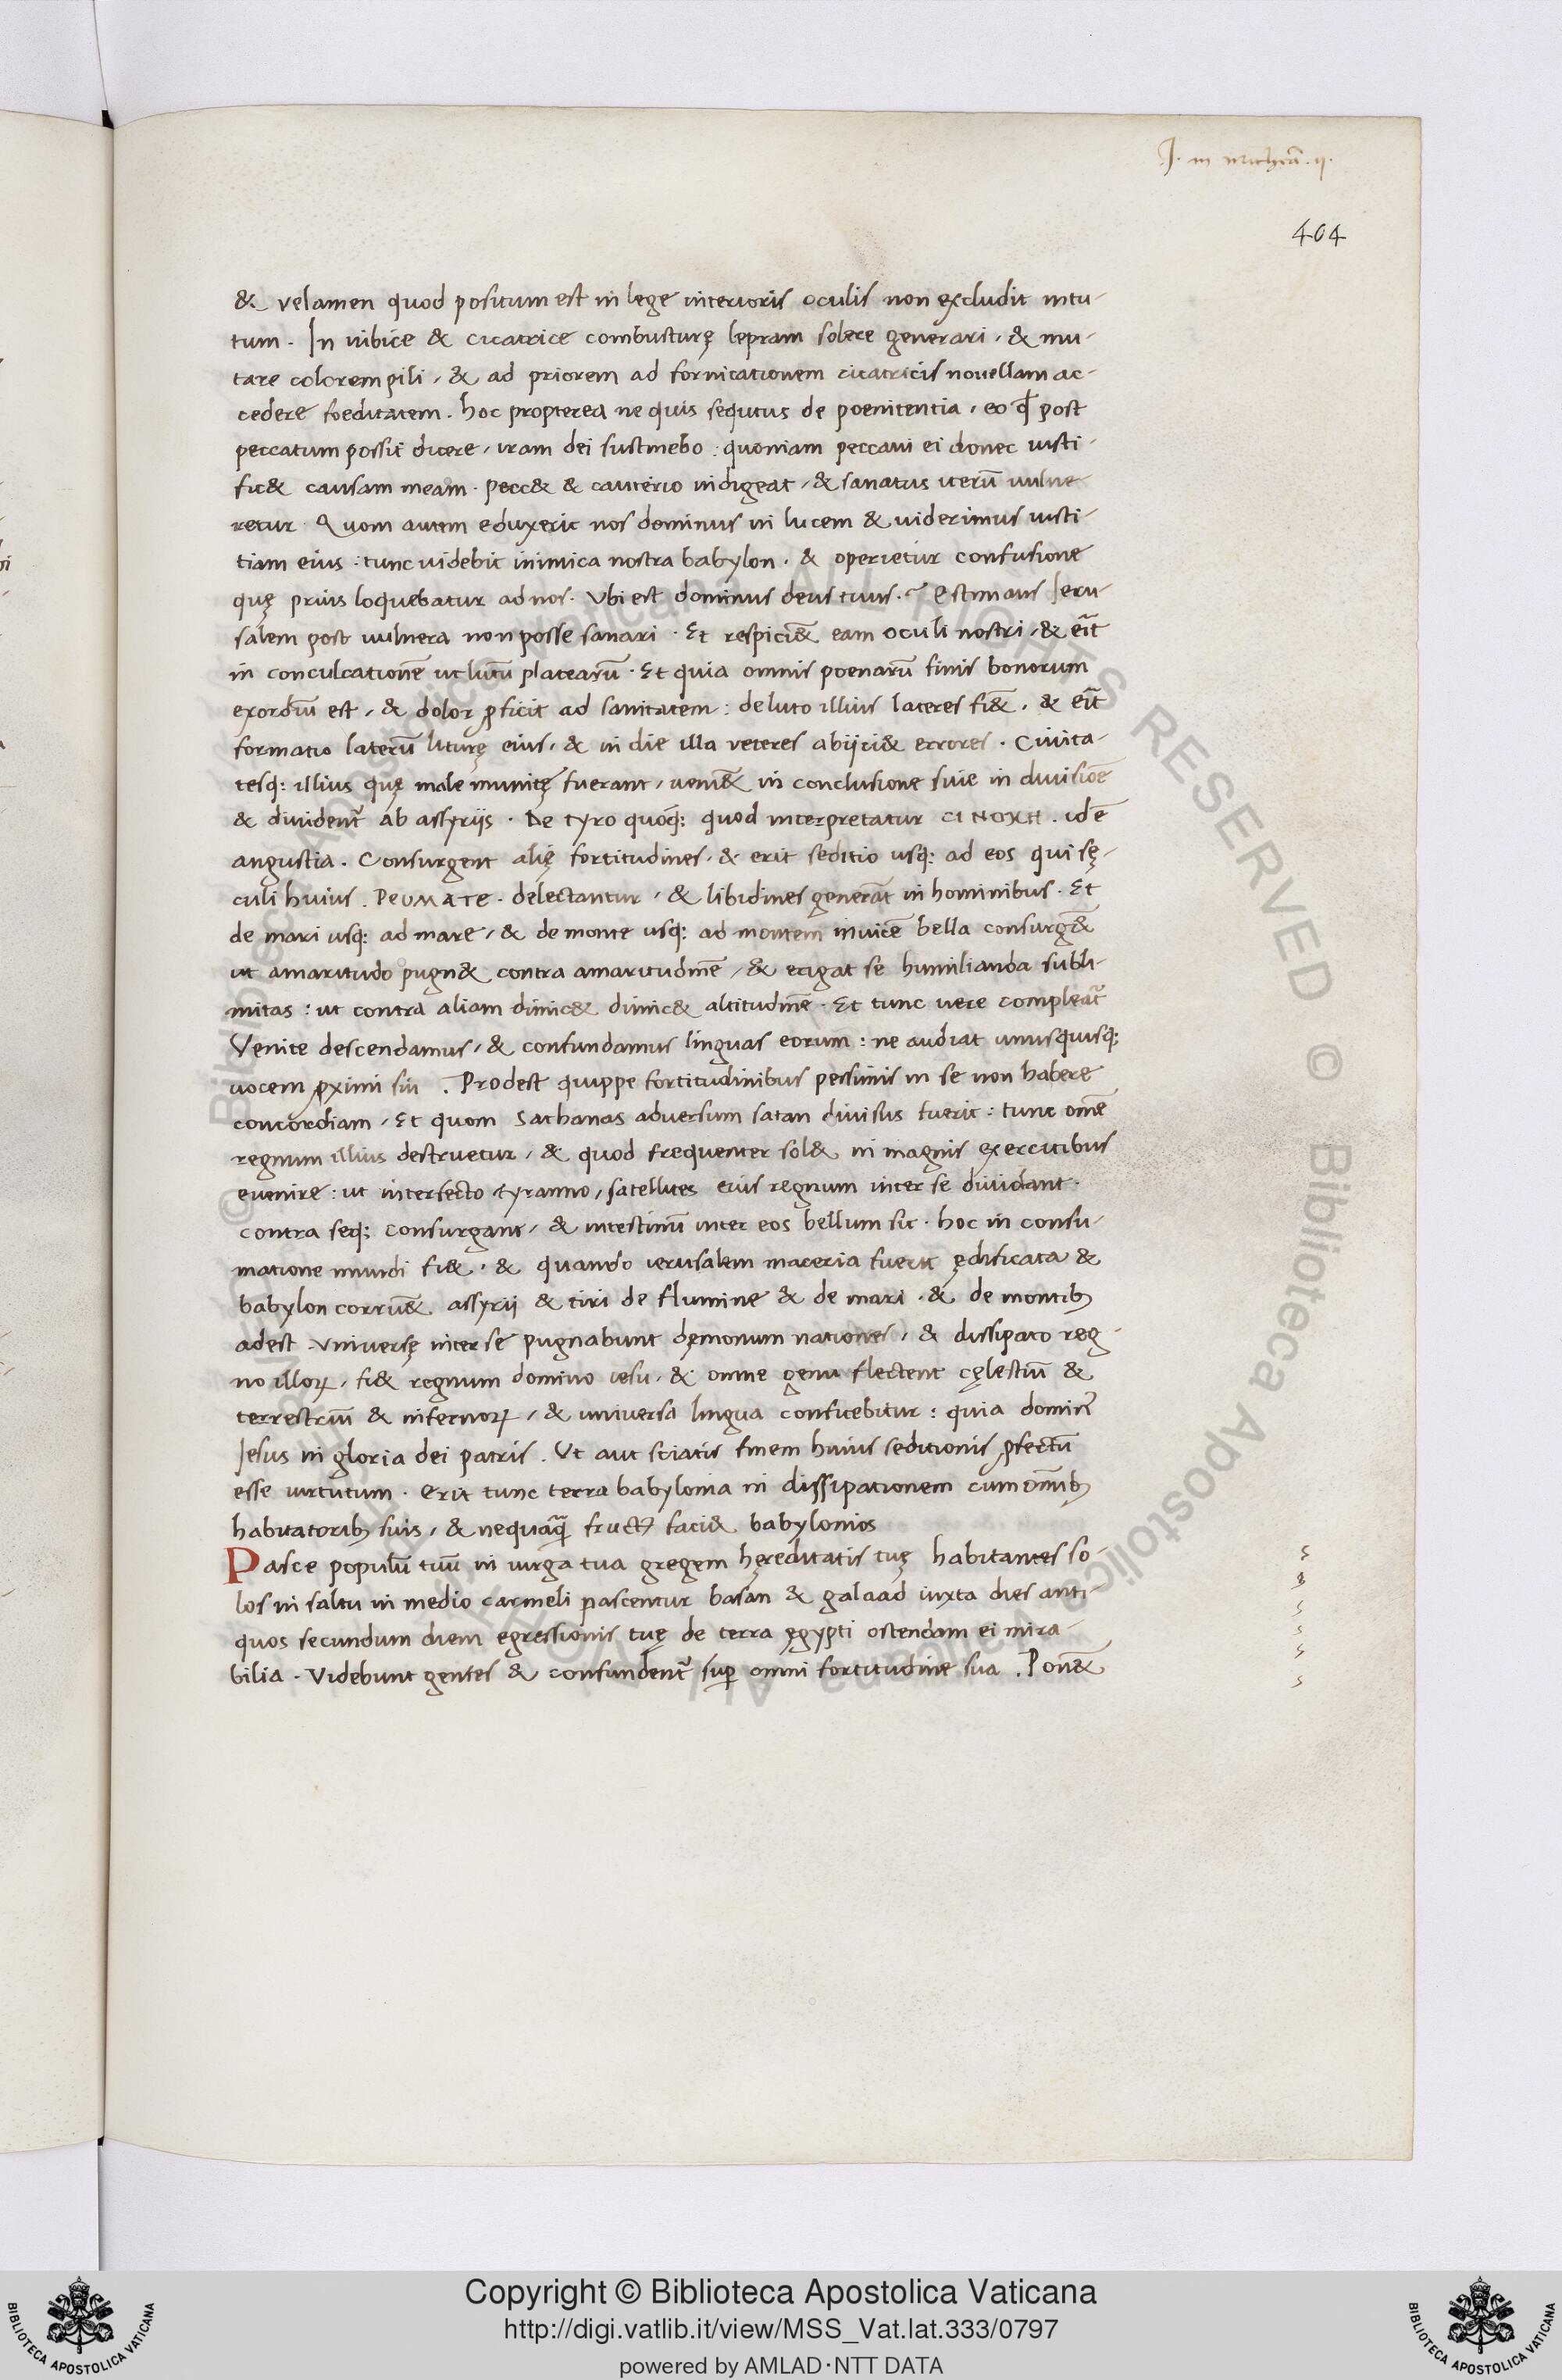 J. in michea. ij.
404
& velamen quod positum est in lege interioris oculis non excludit intu-
tum. In vibice & cicatrice combusturę lepram solere generari, & mu-
tare colorem pili, & ad priorem ad fornicationem cicatricis nouellam ac-
cedere foeditatem. hoc propterea ne quis sequtus de poenitentia, eo ꝙ post
peccatum possit dicere, iram dei sustinebo: quoniam peccaui ei donec iusti-
fic& causam meam. pecc& & cauterio indigeat, & sanatus iterū uulne-
retur. Quom autem eduxerit nos dominus in lucem & uiderimus iusti-
tiam eius: tunc uidebit inimica nostra babylon. & operietur confusione
quę prius loquebatur ad nos. Vbi est dominus deus tuus. Estimans Jeru-
salem post uulnera non posse sanari. Et respici&̄ eam oculi nostri, & er̄it
in conculcationē ut lutū platearū. Et quia omnis poenarū finis bonorum
exordiū est, & dolor ꝓficit ad sanitatem: de luto illius lateres fi&̄. & er̄it
formatio laterū liturę eius, & in die illa veteres abijci& errores. Ciuita-
tesq; illius quę male munitę fuerant, ueni&̄ in conclusione siue in diuisiōe
& diuident̄ ab assyrijs. De tyro quoq; quod interpretatur CINOXH. idē
angustia. Consurgent alię fortitudines, & erit seditio usq; ad eos qui sę-
culi huius. PEUMATE. delectantur, & libidines generāt in hominibus. Et
de mari usq; ad mare, & de monte usq; ad montem inuicē bella consurg&̄
ut amaritudo pugn& contra amaritudinē, & erigat se humilianda subli-
mitas: ut contra aliam dimic& dimic& altitudinē. Et tunc uere compleat̄
Venite descendamus, & confundamus linguas eorum: ne audiat unusquisq;
uocem ꝓximi sui. Prodest quippe fortitudinibus pessimis in se non habere
concordiam, Et quom Sathanas aduersum satan diuisus fuerit: tunc omē
regnum illius destruetur, & quod frequenter sol& in magnis exercitibus
euenire: ut interfecto tyranno, satellites eius regnum inter se diuidant.
contra seq; consurgant, & intestinū inter eos bellum sit. hoc in consu-
matione mundi fi&. & quando ierusalem maceria fuerit ędificata &
babylon corru&̄ assyrij & tiri de flumine & de mari. & de montibꝫ
adest. vniuersę inter se pugnabunt dęmonum nationes, & dissipato reg-
no illoꝝ, fi& regnum domino iesu, & omne genu flectent cęlestiū &
terrestriū & infernoꝝ, & uniuersa lingua confitebitur: quia domin᷒
Jesus in gloria dei patris. Ut aut sciatis finem huius seditionis ꝓfectū
esse uirtutum. Erit tunc terra babylonia in dissipationem cum om̄ibꝫ
habitatoribꝫ suis, & nequaq̄ fruct᷒ faci& babylonios
Pasce populū tuū in uirga tua gregem hęreditatis tuę habitantes so-
los in saltu in medio carmeli pascentur basan & galaad iuxta dies anti-
quos secundum diem egressionis tuę de terra ęgypti ostendam ei mira-
bilia. Videbunt gentes & confundent̄ sup̄ omni fortitudine sua. Pon&̄
Copyright © Biblioteca Apostolica Vaticana
http://digi.vatlib.it/view/MSS_Vat.lat.333/0797
powered by AMLAD·NTT DATA
BIBLIOTECA APOSTOLICA VATICANA
BIBLIOTECA APOSTOLICA VATICANA